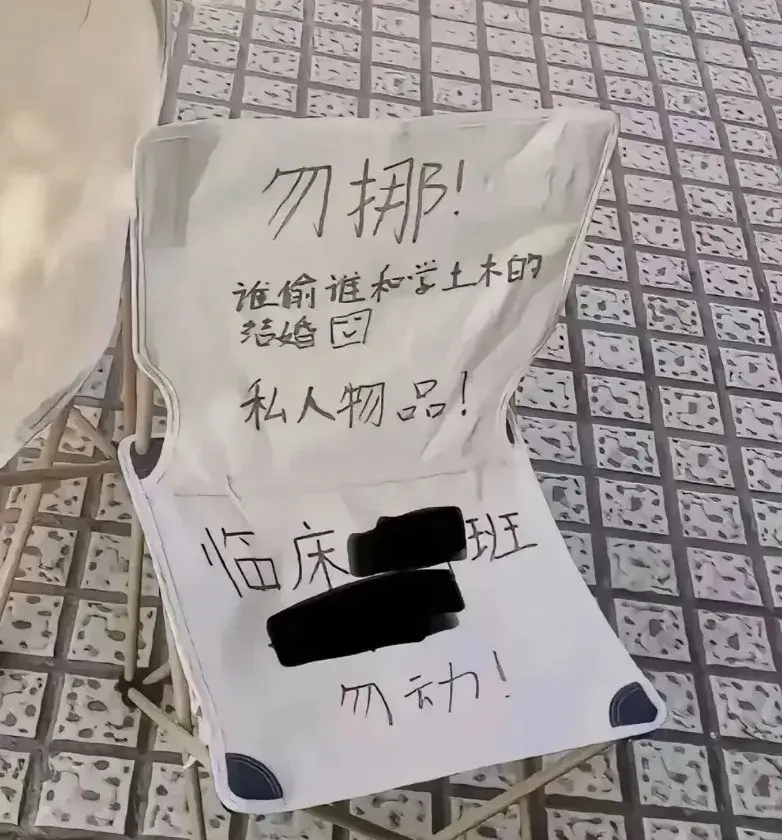 勿挪!
谁偷谁和学土木的
结婚
私人物品!
临床
班
勿动!